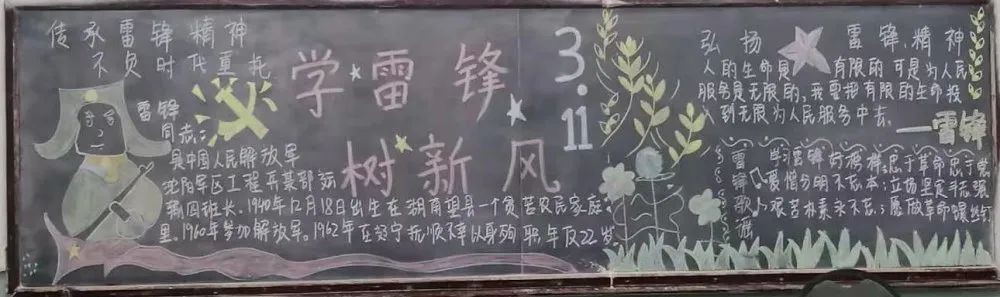 传承雷锋精神
不负时代重托
学雷锋
树新风
3.11
雷锋
同志:
是中国人民解放军
沈阳军区工程兵某部运
输四班长。1940年12月18日出生在湖南望县一个贫苦农民家庭
里。1960年参加解放军。1962年在辽宁抚顺不幸以身殉职,年仅22岁
弘扬雷锋精神
人的生命是有限的可是为人民
服务是无限的,我要把有限的生命投
入到无限为人民服务中去。
—雷锋
雷锋歌谣
学习雷锋好榜样;忠于革命忠于党
爱憎分明不忘本;立场坚定斗志强
艰苦朴素永不忘;愿做革命螺丝钉